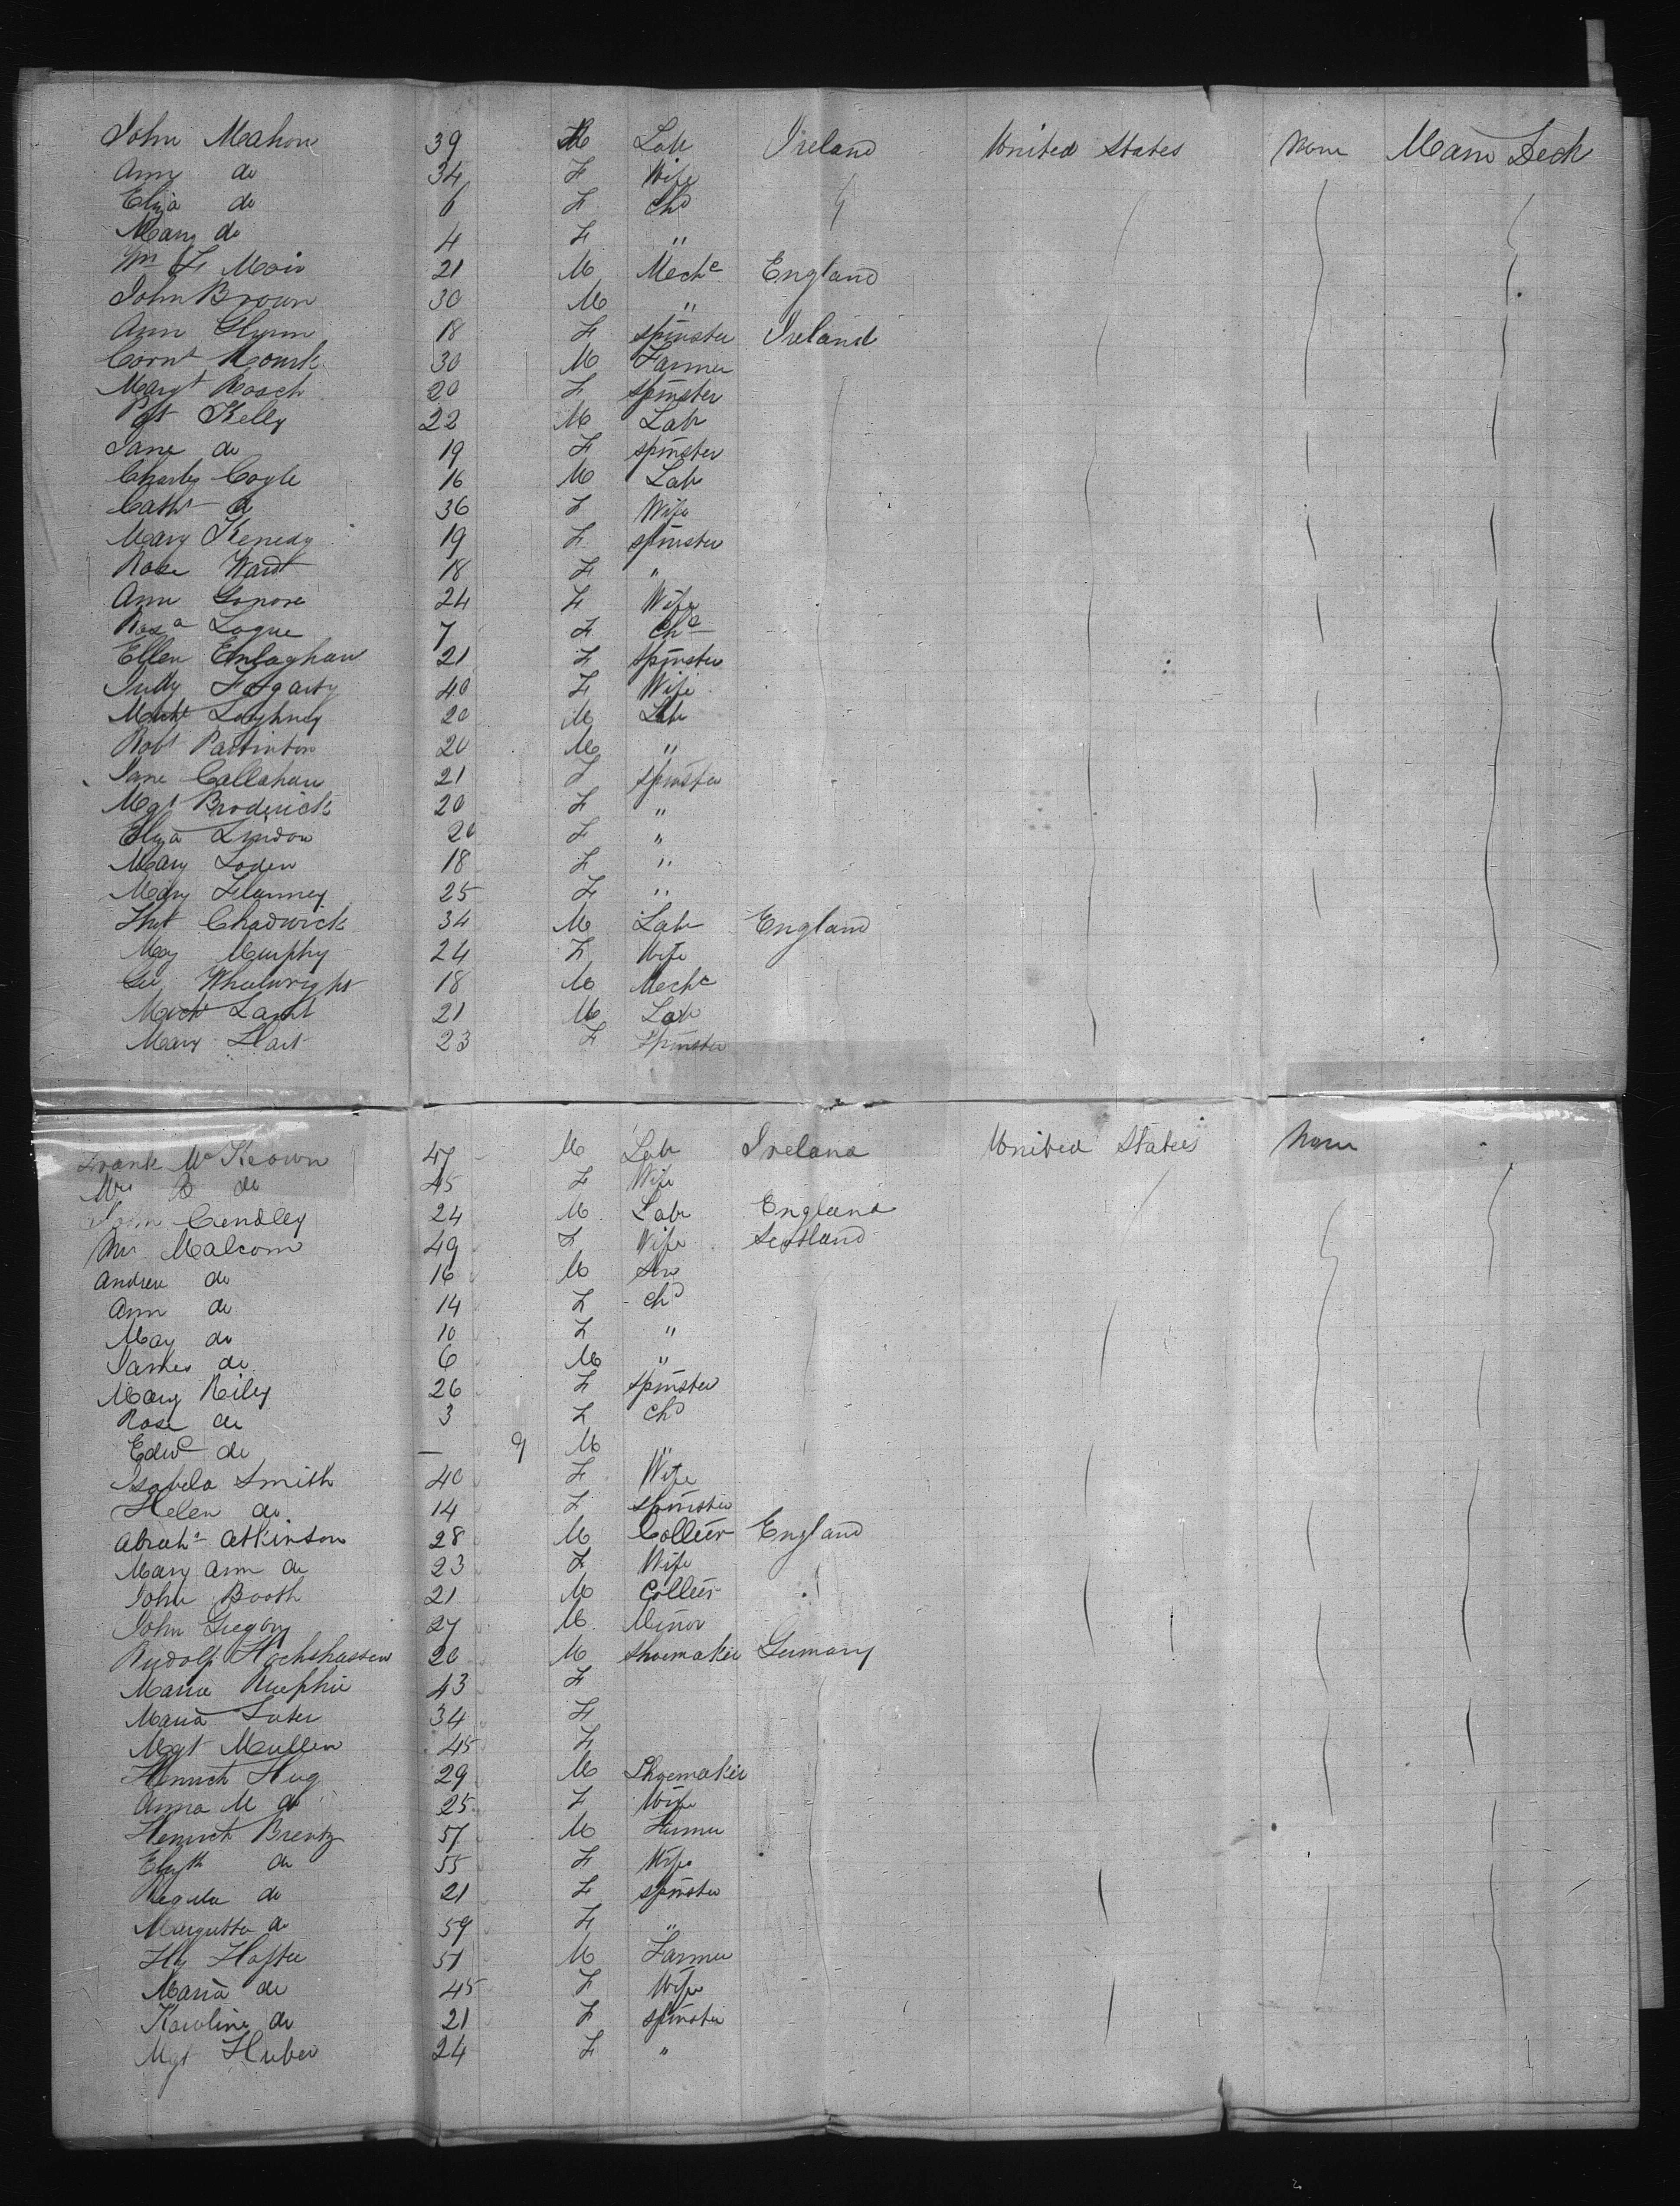 John Mahon 39 M Labr Ireland United States None Main Deck
Ann do 34 F Wife
Eliza do 6 F Chd
Mary do 4 F "
Wm F Moir 21 M Mechc England
John Brown 30 M "
Ann Glynn 18 F Spinster Ireland
Corns Rourk 30 M Farmer
Margt Roach 20 F Spinster
Pat Kelly 22 M Labr
Jane do 19 F Spinster
Charles Coyle 16 M Labr
Cath do 36 F Wife
Mary Kenedy 19 F Spinster
Rose Ward 18 F "
Ann 24 F Wife
Rosa Logue 7 F Chd
Ellen 21 F Spinster
Judy Fogarty 40 F Wife
20 M Labr
Robt Partinton 20 M "
Jane Callahan 21 F Spinster
Mgt Broderick 20 F "
Eliza 20 F "
Mary Loden 18 F "
Mary Flannery 25 F "
Chadwick 34 M Labr England
May Murphy 24 F Wife
Geo Wheelwright 18 M Mechc
21 M Labr
Mary Hart 23 F Spinster
Frank McKeown 47 M Labr Ireland United States None
Mrs B do 45 F Wife
Cendley 24 M Labr England
Mrs Malcom 49 F Wife Scotland
Andrew do 16 M Son
Ann do 14 F Chd
May do 10 F "
James do 6 M "
Mary Riley 26 F Spinster
Rose do 3 F Chd
Edwd do — 9 M "
Isabela Smith 40 F Wife
Helen do 14 F Spinster
Abrahm Atkinson 28 M Collier England
Mary Ann do 23 F Wife
John Booth 21 M Collier
John Gregory 27 M Minor
Rudolf 20 M Shoemaker Germany
Maria 43 F
Maria Suter 34 F
Mgt Mullen 45 F
Henrich Hug 29 M Shoemaker
Anna M do 25 F Wife
Henrich Brentz 57 M Farmer
Elizth do 55 F Wife
Regula do 21 F Spinster
Margretta do 59 F "
Hy Hafter 51 M Farmer
Maria do 45 F Wife
Karoline do 21 F Spinster
Mgt Huber 24 F "